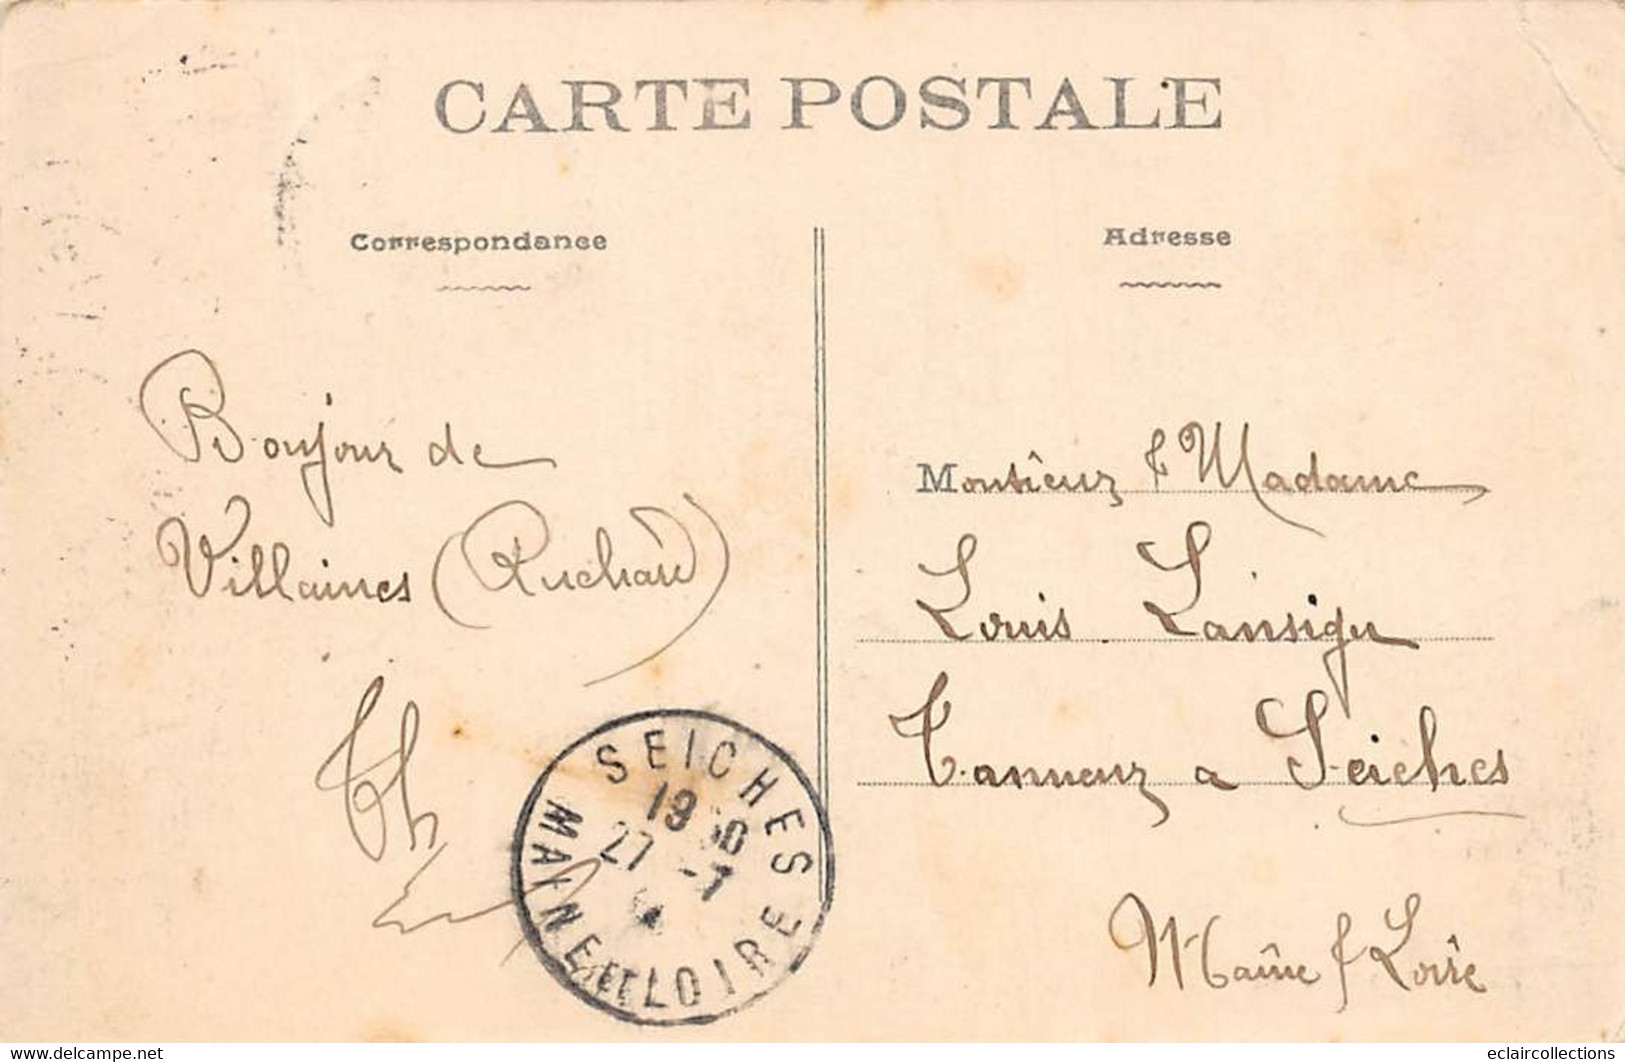 CARTE POSTALE
Correspondance
Adresse
Bonjour de
Villaines (Ruchard)
Th
Monsieur & Madame
Louis Lansigu
Tanneur a Seiches
Maine & Loire
SEICHES
27 -7
MAINE ET LOIRE
www.delcampe.net
eclaircollections